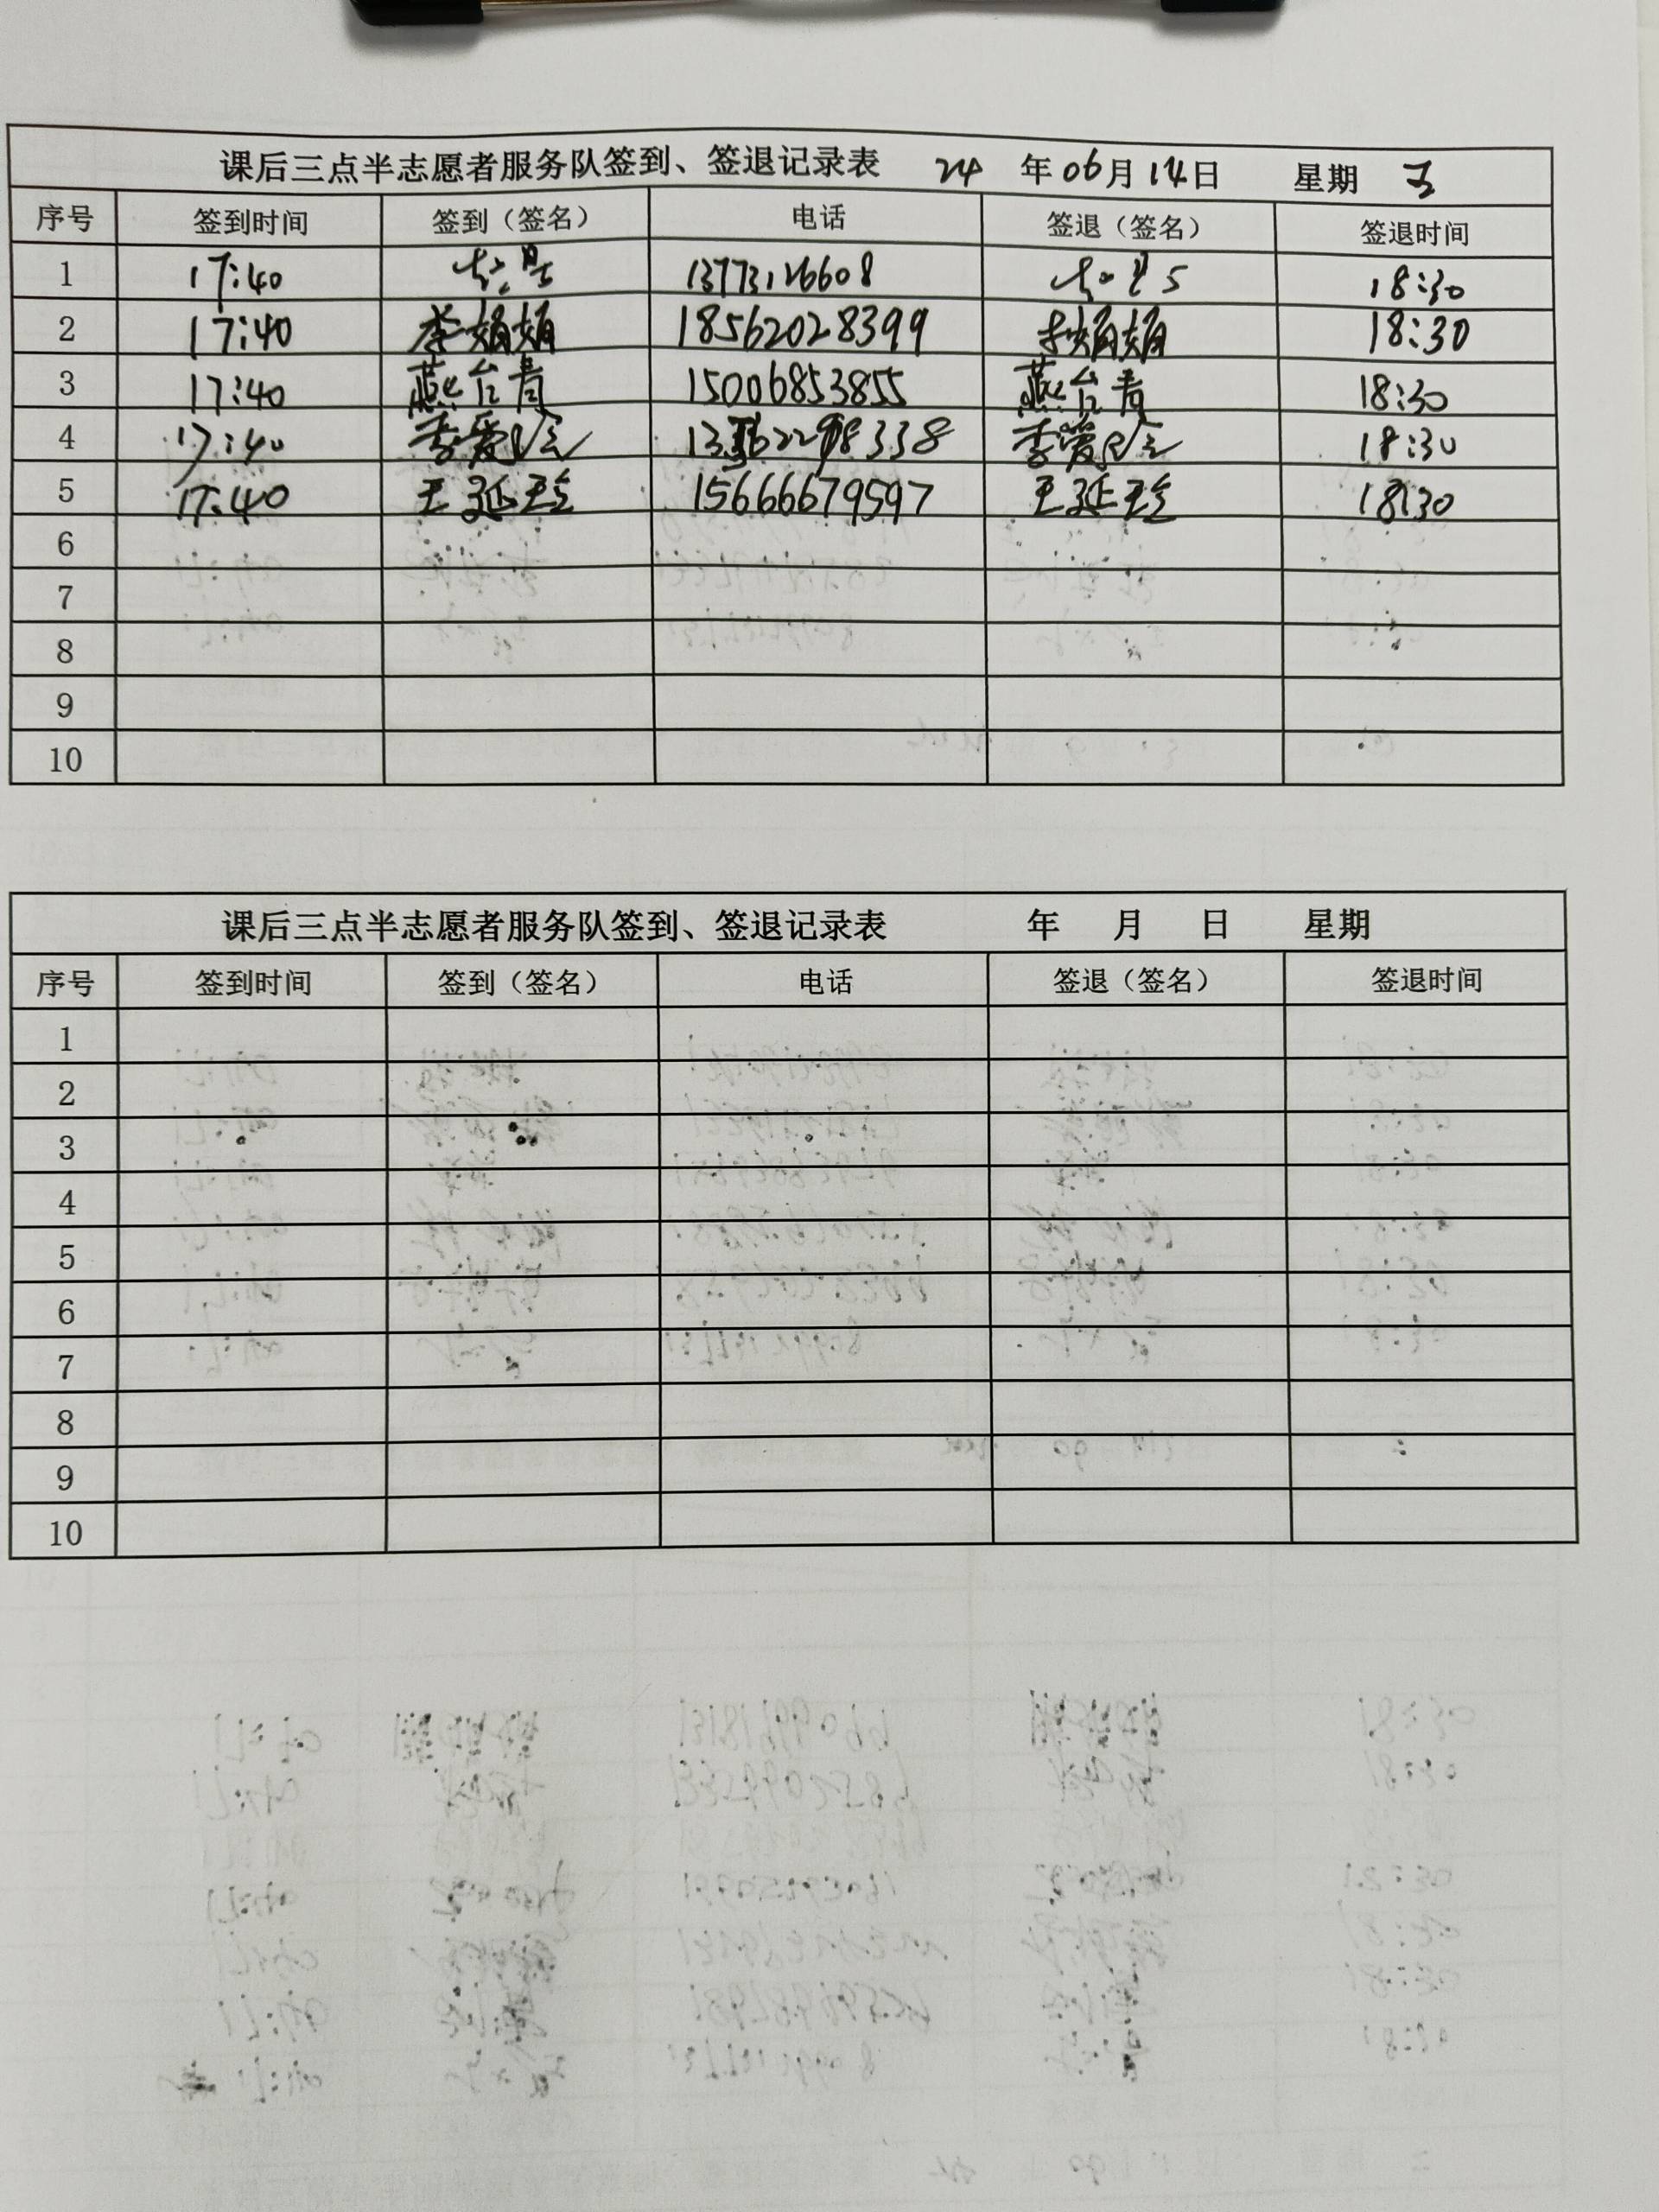 课后三点半志愿者服务队签到、签退记录表 24 年 06 月 14 日 星期 五
序号 签到时间 签到（签名） 电话 签退（签名） 签退时间
1 17:40 13773126608 18:30
2 17:40 李娟娟 18562028399 李娟娟 18:30
3 17:40 燕台青 15006853855 燕台青 18:30
4 17:40 李爱 李爱 18:30
5 17:40 王延玲 15666679597 王延玲 18:30
6
7
8
9
10
课后三点半志愿者服务队签到、签退记录表 年 月 日 星期
序号 签到时间 签到（签名） 电话 签退（签名） 签退时间
1
2
3
4
5
6
7
8
9
10